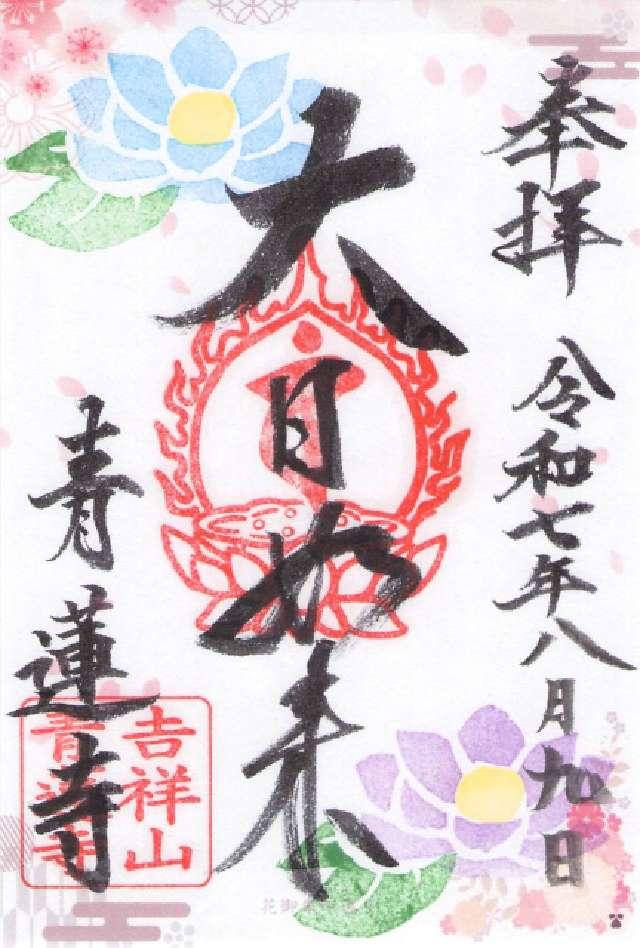 奉拝
令和七年八月九日
大日如来
青蓮寺
吉祥山
青蓮寺